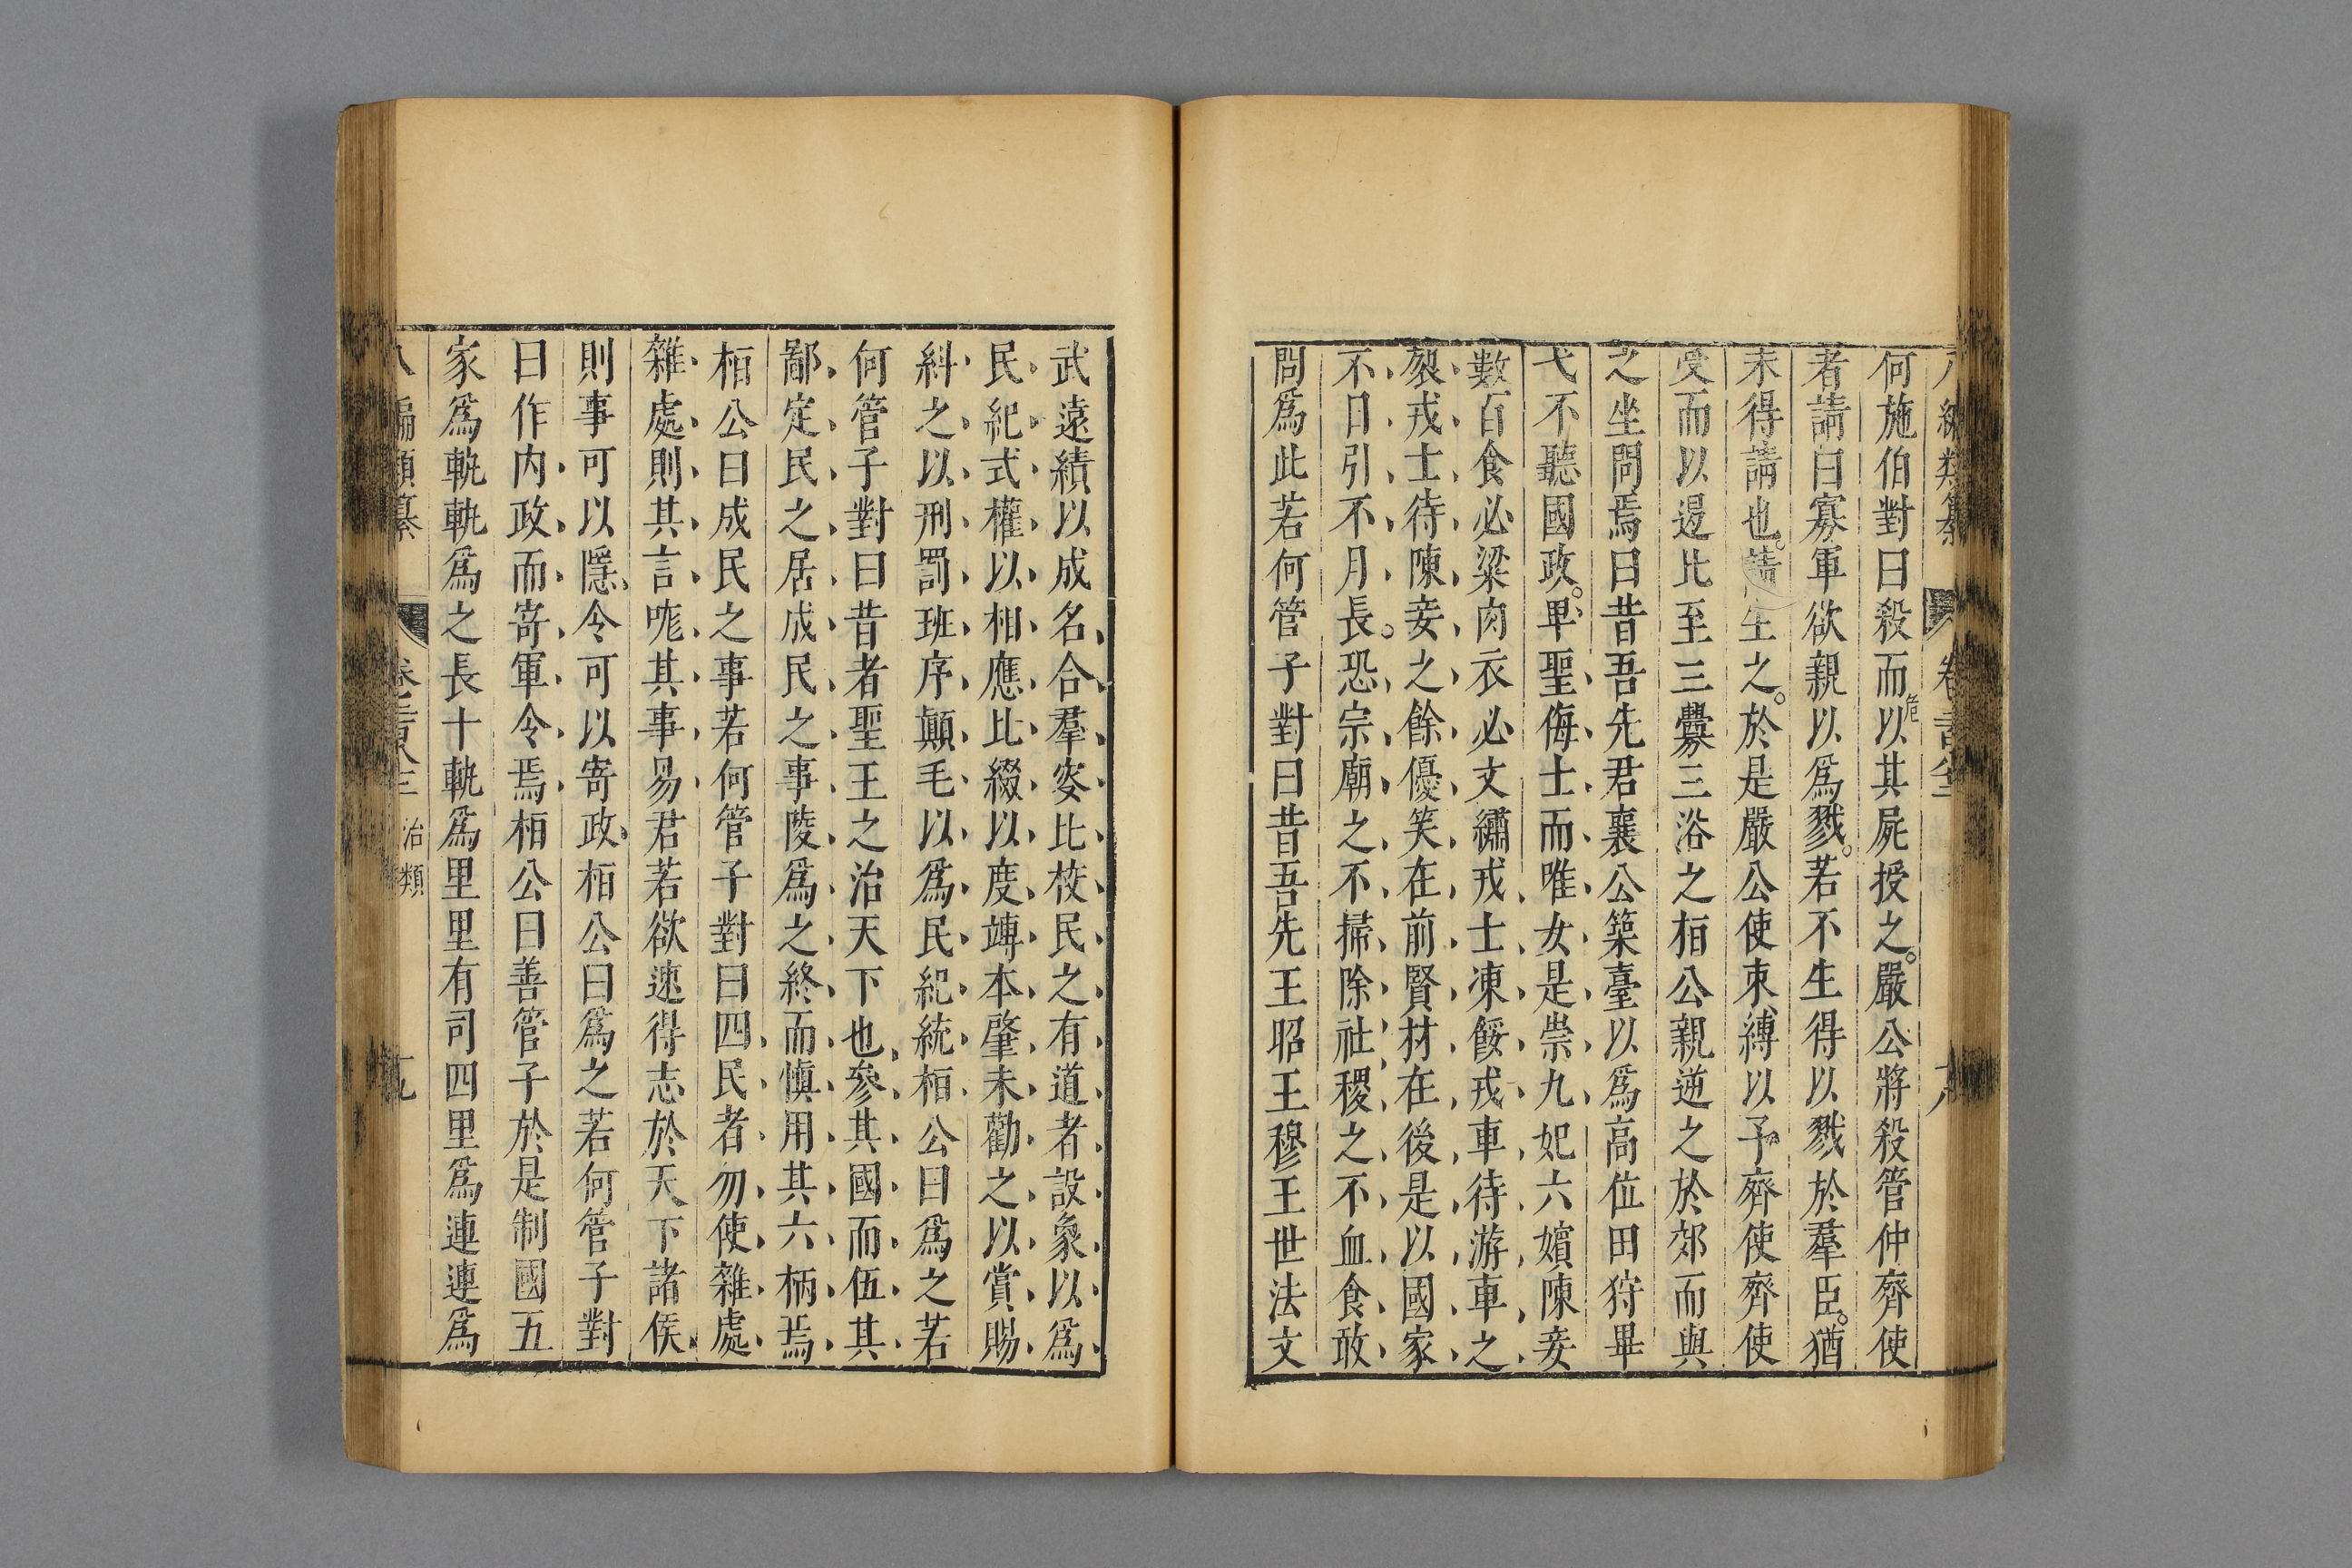 八編類纂 卷二百八三
何施伯對曰殺而以其屍授之嚴公將殺管仲齊使
者請曰寡軍欲親以爲戮若不生得以戮於羣臣猶
未得請也請生之於是嚴公使束縛以予齊使齊使
受而以退比至三釁三浴之桓公親逆之於郊而與
之坐問焉曰昔吾先君襄公築臺以爲高位田狩畢
弋不聽國政卑聖侮士而唯女是崇九妃六嬪陳妾
數百食必粱肉衣必文繡戎士凍餒戎車待游車之
𥜽戎士待陳妾之餘優笑在前賢材在後是以國家
不日引不月長恐宗廟之不掃除社稷之不血食敢
問爲此若何管子對曰昔吾先王昭王穆王世法文
武遠績以成名合羣叜比校民之有道者設象以爲
民紀式權以相應比綴以度竱本肇末勸之以賞賜
糾之以刑罰班序顛毛以爲民紀統桓公曰爲之若
何管子對曰昔者聖王之治天下也參其國而伍其
鄙定民之居成民之事陵爲之終而慎用其六柄焉
桓公曰成民之事若何管子對曰四民者勿使雜處
雜處則其言哤其事易君若欲速得志於天下諸侯
則事可以隱令可以寄政桓公曰爲之若何管子對
曰作内政而寄軍令焉桓公曰善管子於是制國五
家爲軌軌爲之長十軌爲里里有司四里爲連連爲
八編類纂 卷二百八三 治類 十九